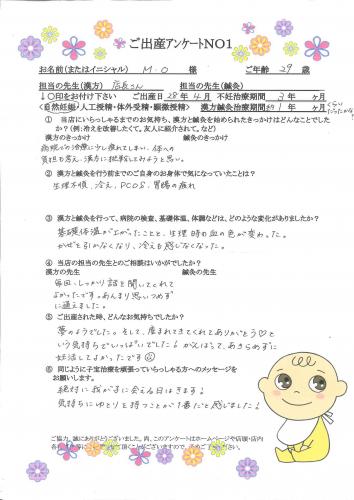 ご出産アンケートNO1
お名前(またはイニシャル) M・O 様 ご年齢 29 歳
担当の先生(漢方) 店長さん 担当の先生(鍼灸)
↓〇印をお付け下さい ご出産日 28年 4月 不妊治療期間 2年 ヶ月
<自然妊娠・人工授精・体外受精・顕微授精> 漢方鍼灸治療期間 約1年 ヶ月
くらいだったかな?
① 当店にいらっしゃるまでのお気持ち、漢方と鍼灸を始められたきっかけはどんなことでしたか?(例:冷えを改善したくて。友人に紹介されて。など)
漢方のきっかけ 鍼灸のきっかけ
病院での治療に少し疲れてしまい、体への
負担も考え、漢方に挑戦してみようと思い。
② 漢方と鍼灸を行う前までのご自身のお身体で気になっていたことは?
生理不順、冷え、PCOS、胃腸の疲れ
③ 漢方と鍼灸を行って、病院の検査、基礎体温、体調などは、どのような変化がありましたか?
基礎体温が上がったことと、生理時の血の色が変わった。
かぜを引かなくなり、冷えも感じなくなった。
④ 当店の担当の先生とのご相談はいかがでしたか?
漢方の先生 鍼灸の先生
毎回、しっかり話を聞いてくれて
よかったです。あんまり思いつめずに
通えました。
⑤ ご出産された時、どんなお気持ちでしたか?
夢のようでした。そして、産まれてきてくれてありがとう♡と
いう気持ちでいっぱいでした!がんばって、あきらめずに
妊活してよかったです
⑥ 同じように子宝治療を頑張っていらっしゃる方へのメッセージを
お願いします。
絶対に我が子に会える日はきます!
気持ちにゆとりを持つことが1番だと感じました!
ご協力、誠にありがとうございました。尚、このアンケートはホームページや店頭・店内